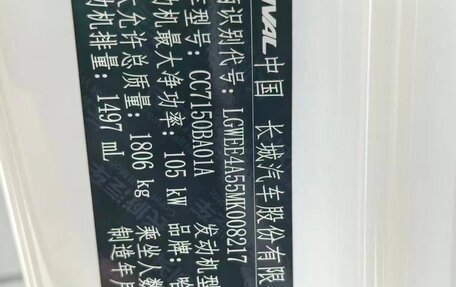 VAL 中国 长城汽车股份有限
识别代号: LGWEE4A55MK008217
车型号: CC7150BA01A 发动机型
机最大净功率: 105 kW 品牌: 哈
允许总质量: 1806 kg 乘坐人数
机排量: 1497 mL 制造年月